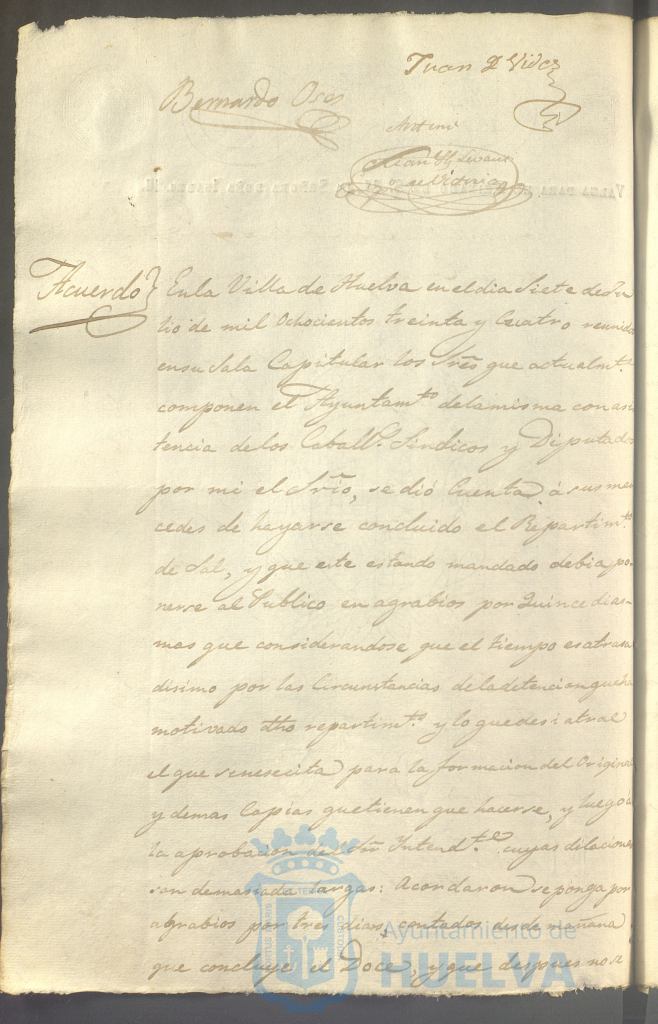 Juan D Vides
Bernardo Oses
Antemi
Juan
de Victoria
Acuerdo} En la Villa de Huelva en el dia Siete de Ju
lio de mil Ochocientos treinta y Cuatro reunidos
en su Sala Capitular los Sres que actualmte
componen el Ayuntamto de la misma con asis
tencia de los Caballs Sindicos y Diputados
por mi el Srio, se dió Cuenta á sus mer
cedes de hayarse concluido el Repartimto
de Sal, y que este estando mandado debia po-
nerse al Publico en agrabios por Quince dias-
mas que considerandose que el tiempo es atrasa
disimo por las Circunstancias de la detencion que ha
motivado dho repartimto y lo que de si atrae
el que se nesecita para la formacion del Original
y demas Copias que tienen que hacerse, y luego á
la aprobacion del Sor Intendte cuyas dilaciones
son demasiada largas: Acordaron se ponga por
agrabios por tres dias, contados desde mañana
que concluye el Doce, y que despues no se
Ayuntamiento de
HUELVA